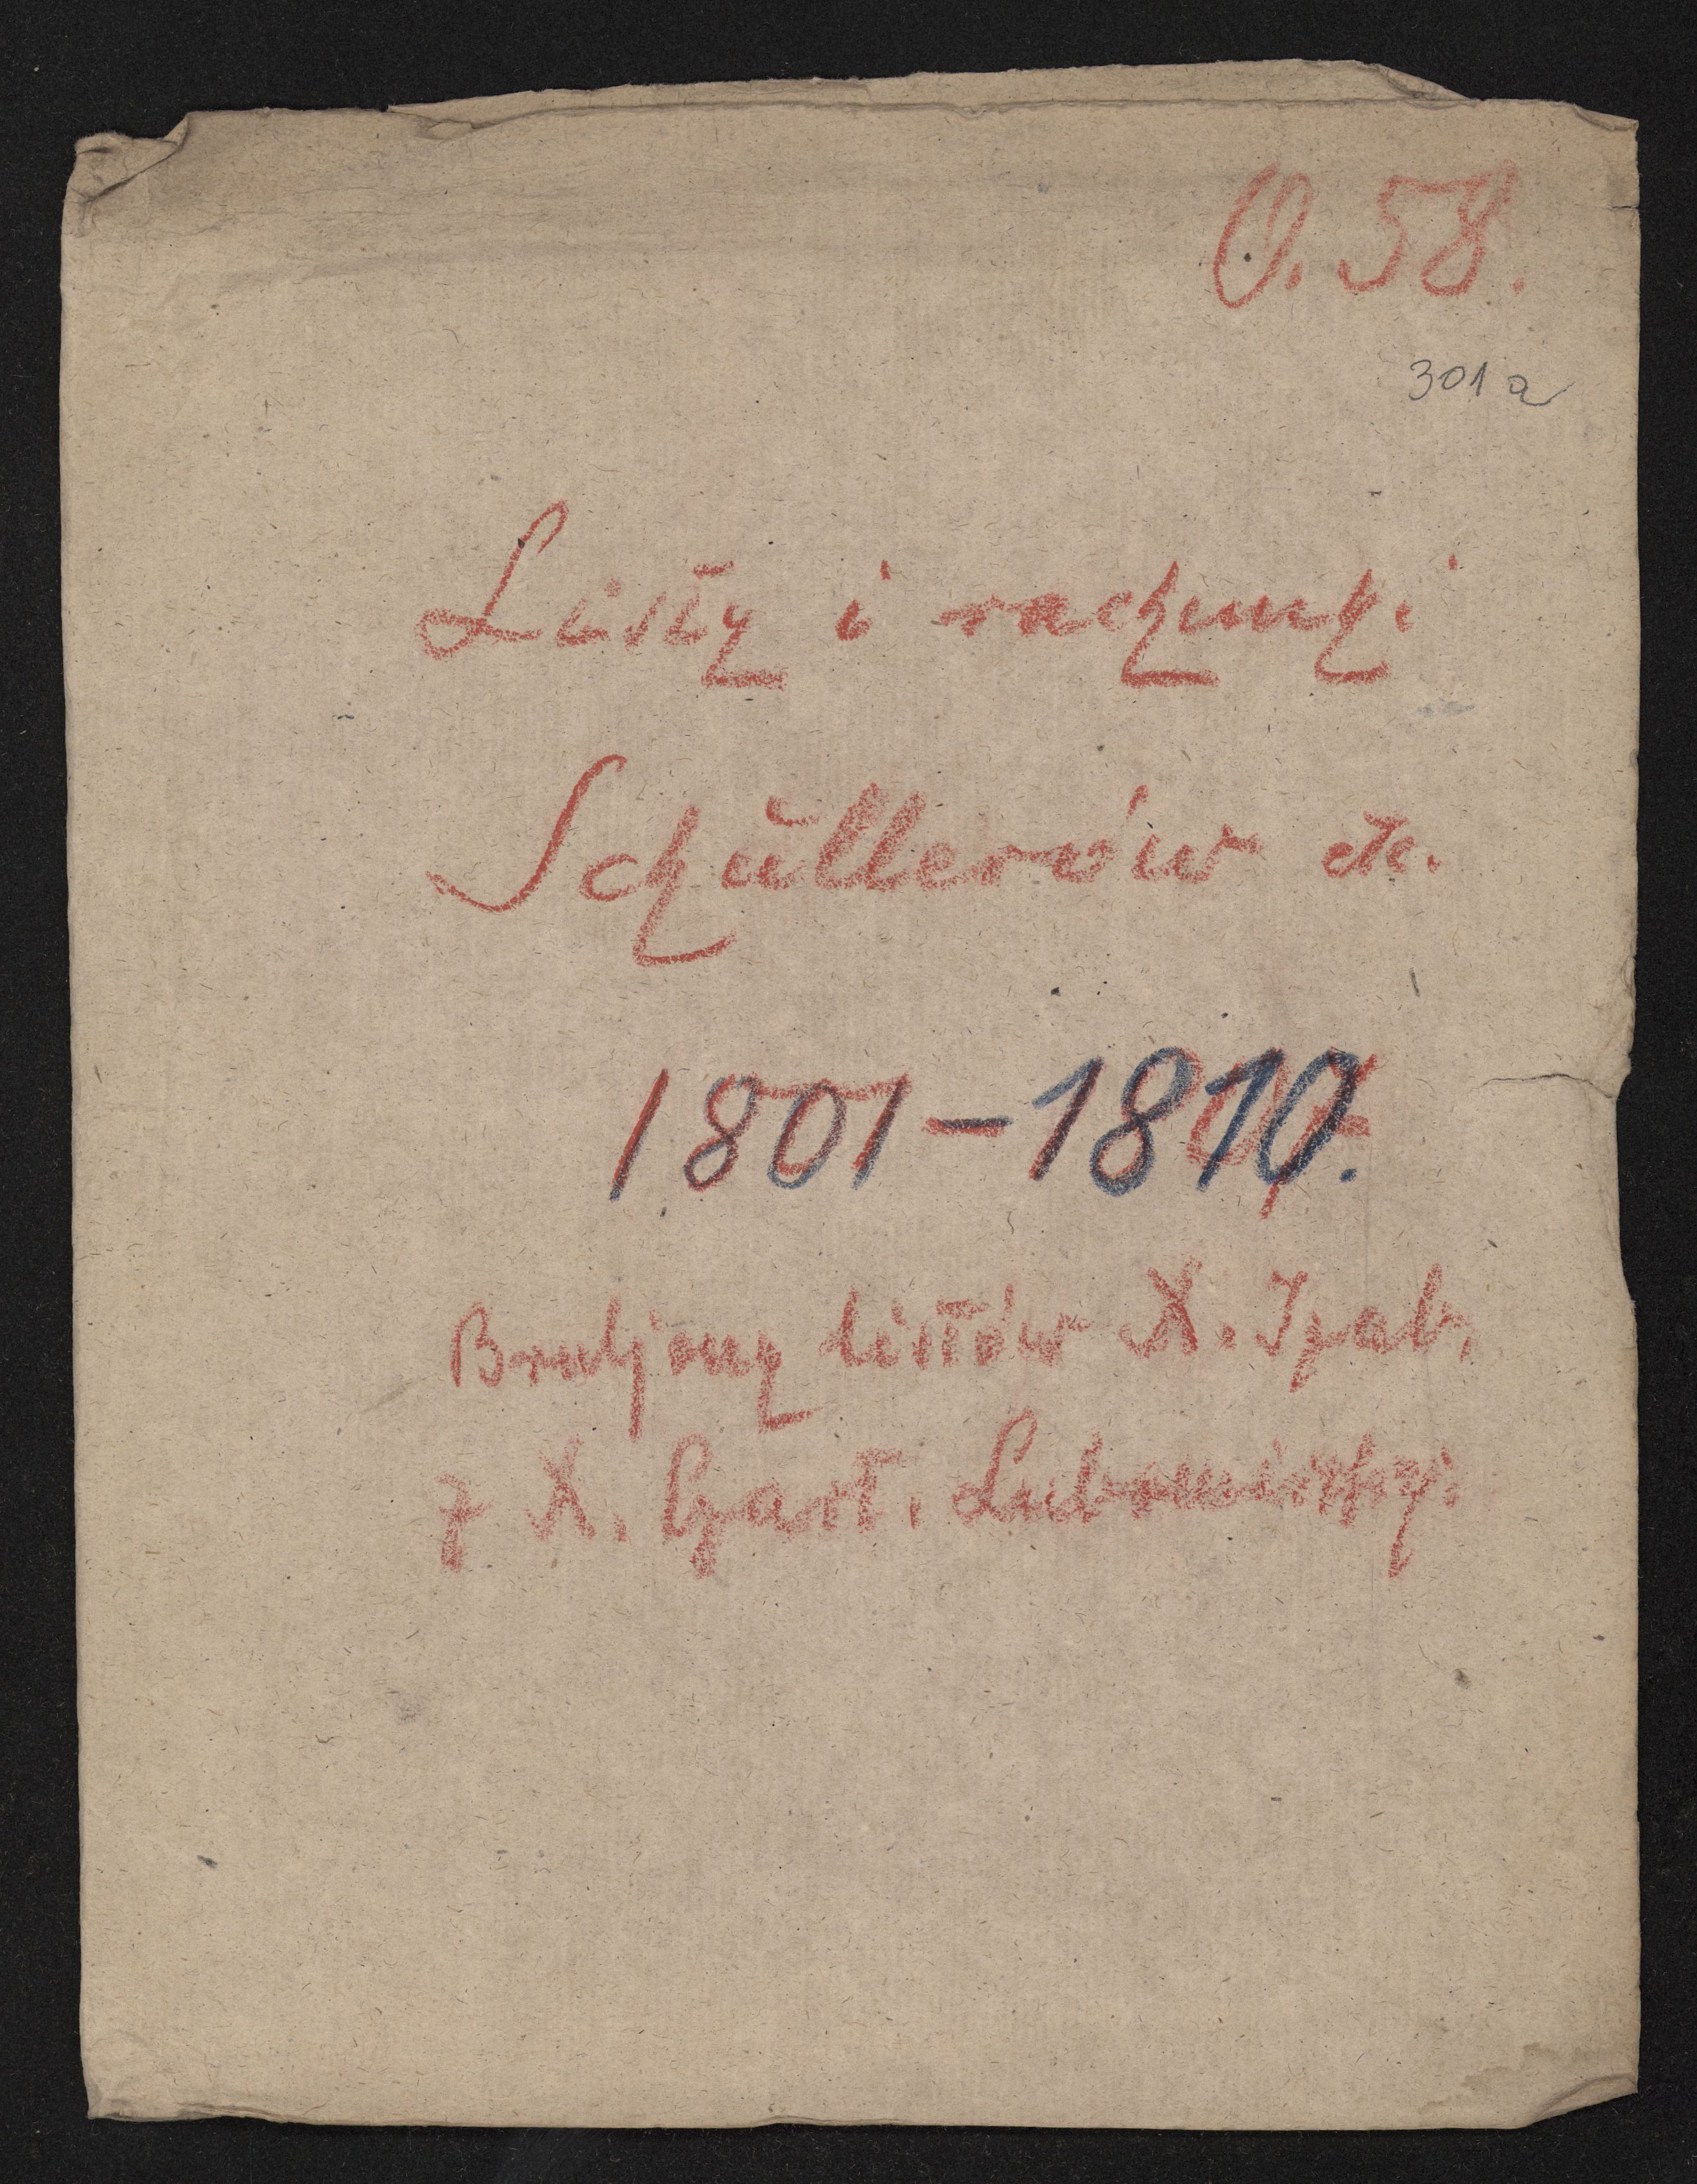 O. 58.
301 a
Listy i rachunki
Schüllerów etc.
1801–1810.
Bruljony listów X. Izab.
z X. Czart. Lubomirskiej.